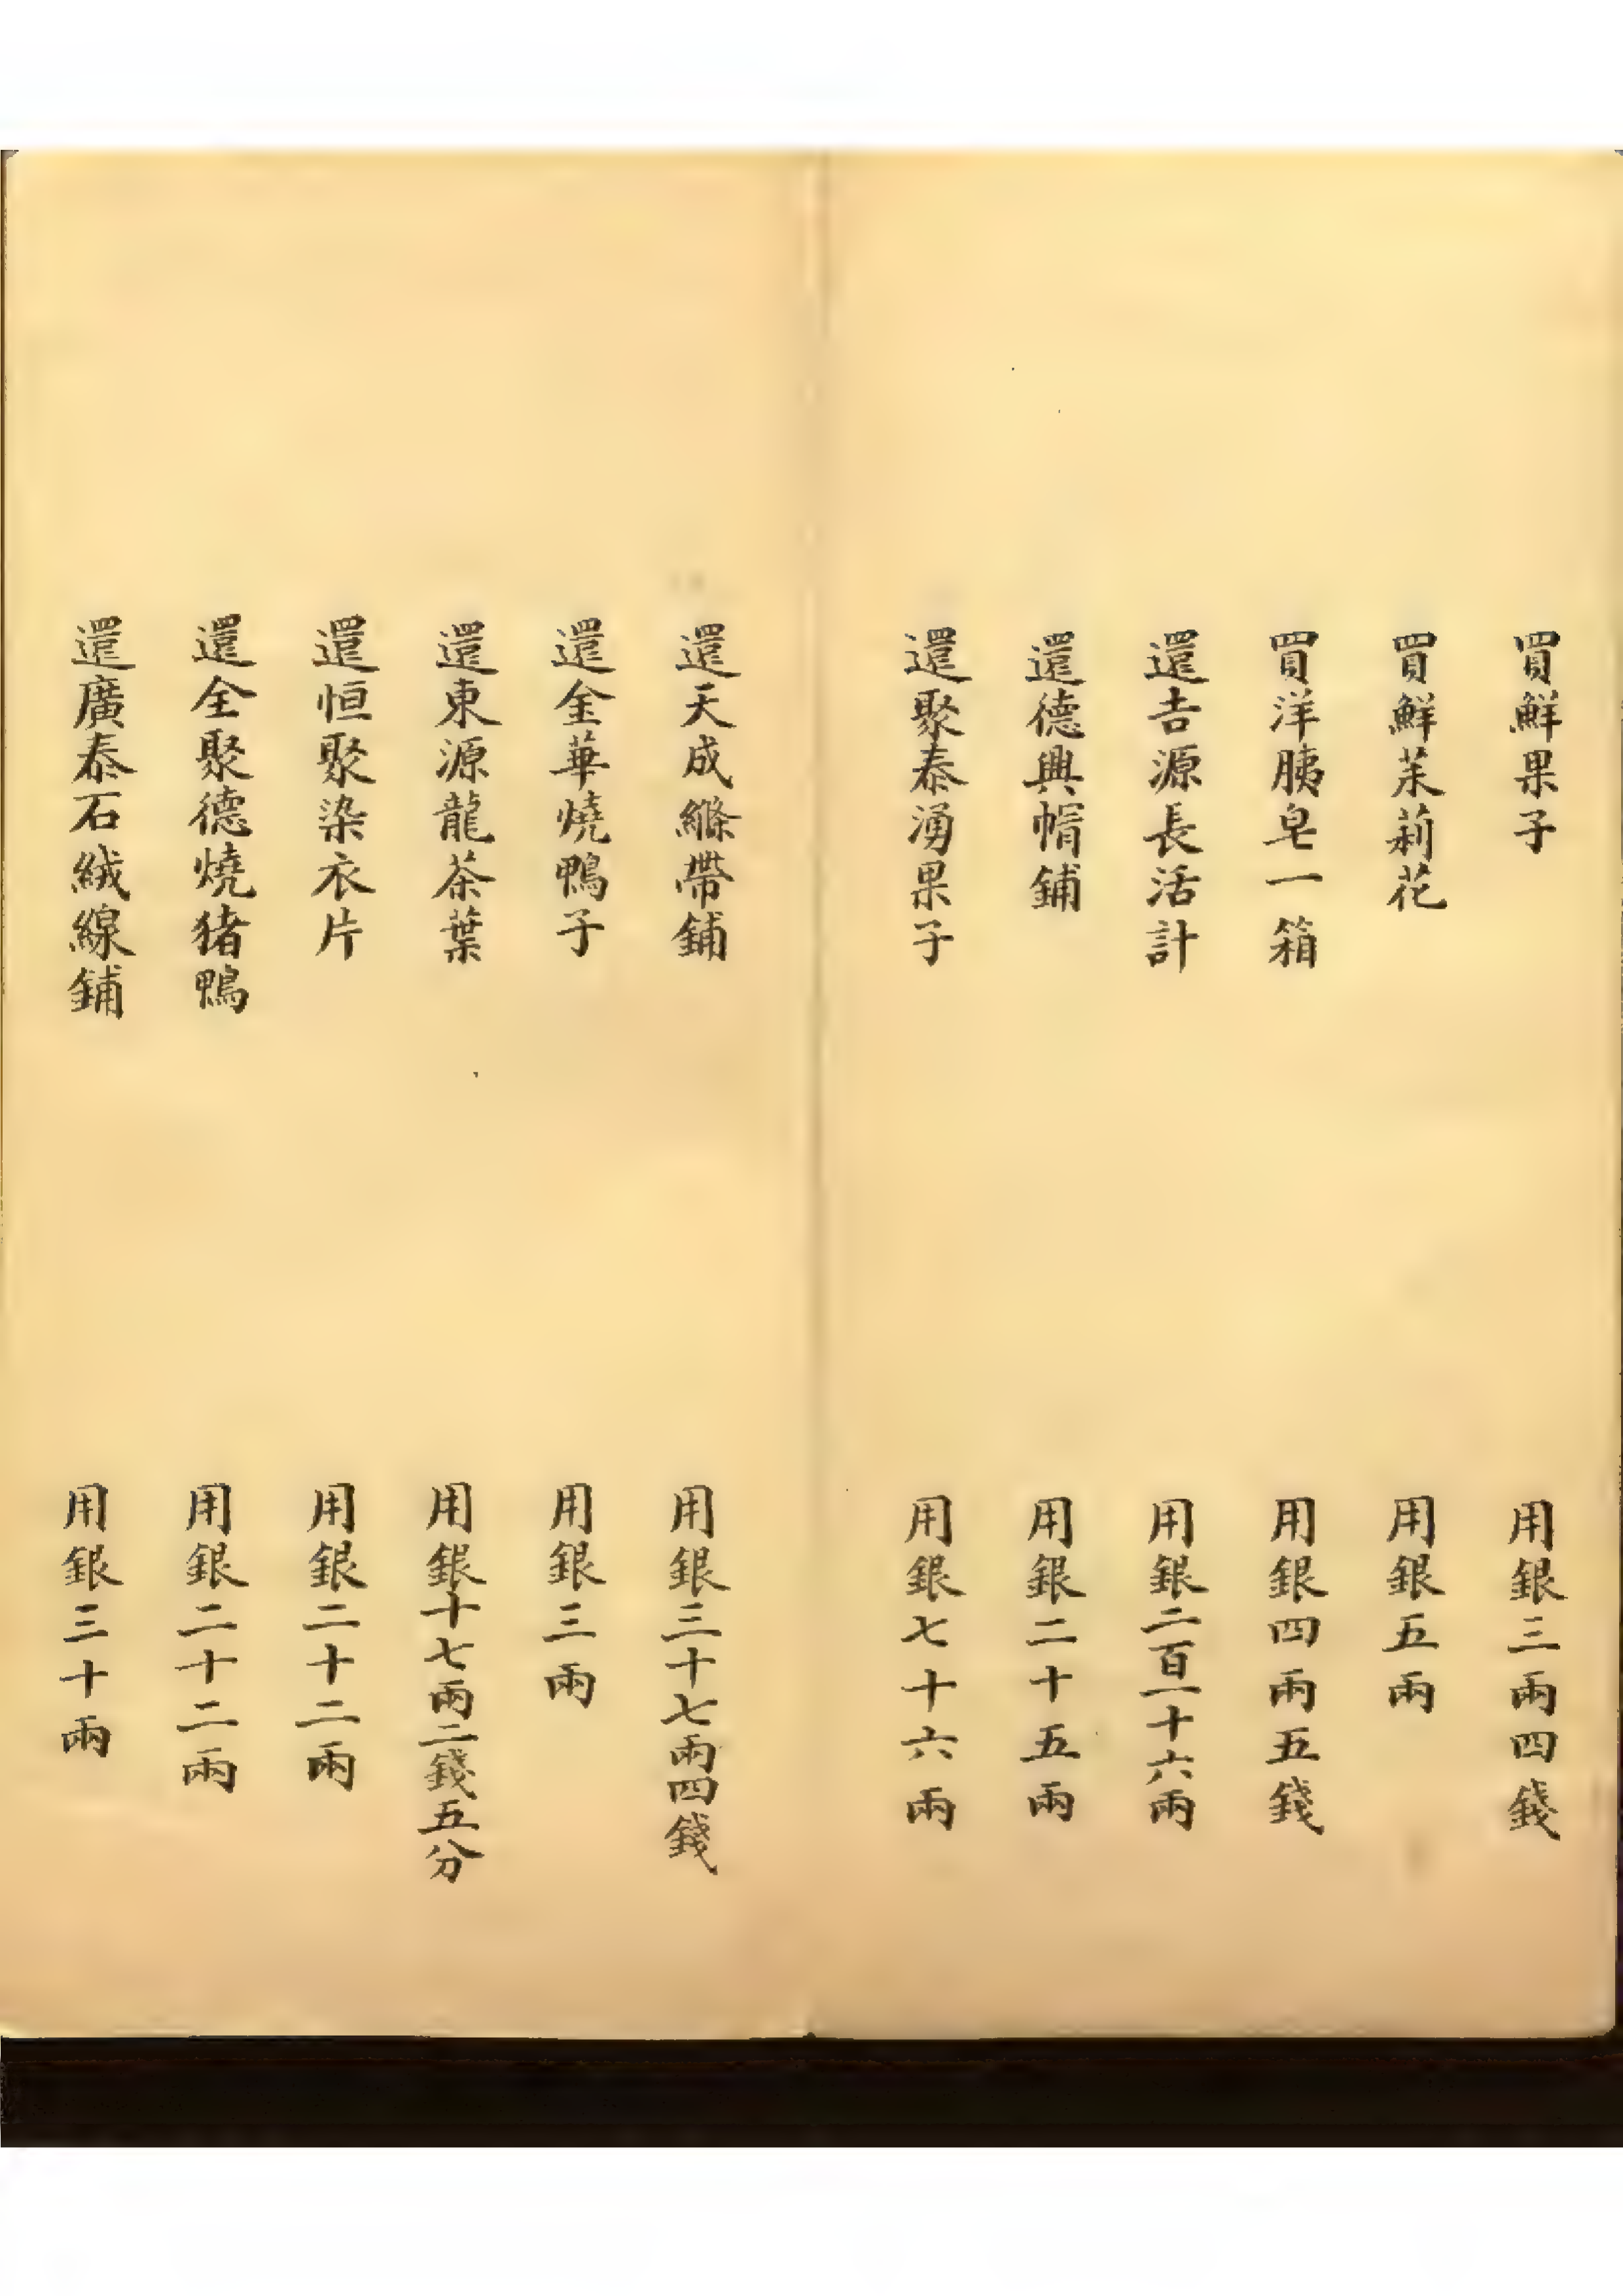 買鮮果子 用銀三兩四錢
買鮮茉莉花 用銀五兩
買洋胰皂一箱 用銀四兩五錢
還吉源長活計 用銀二百一十六兩
還德興帽鋪 用銀二十五兩
還聚泰湧果子 用銀七十六兩
還天成縧帶鋪 用銀三十七兩四錢
還金華燒鴨子 用銀三兩
還東源龍茶葉 用銀十七兩二錢五分
還恒聚染衣片 用銀二十二兩
還全聚德燒猪鴨 用銀二十二兩
還廣泰石絨線鋪 用銀三十兩